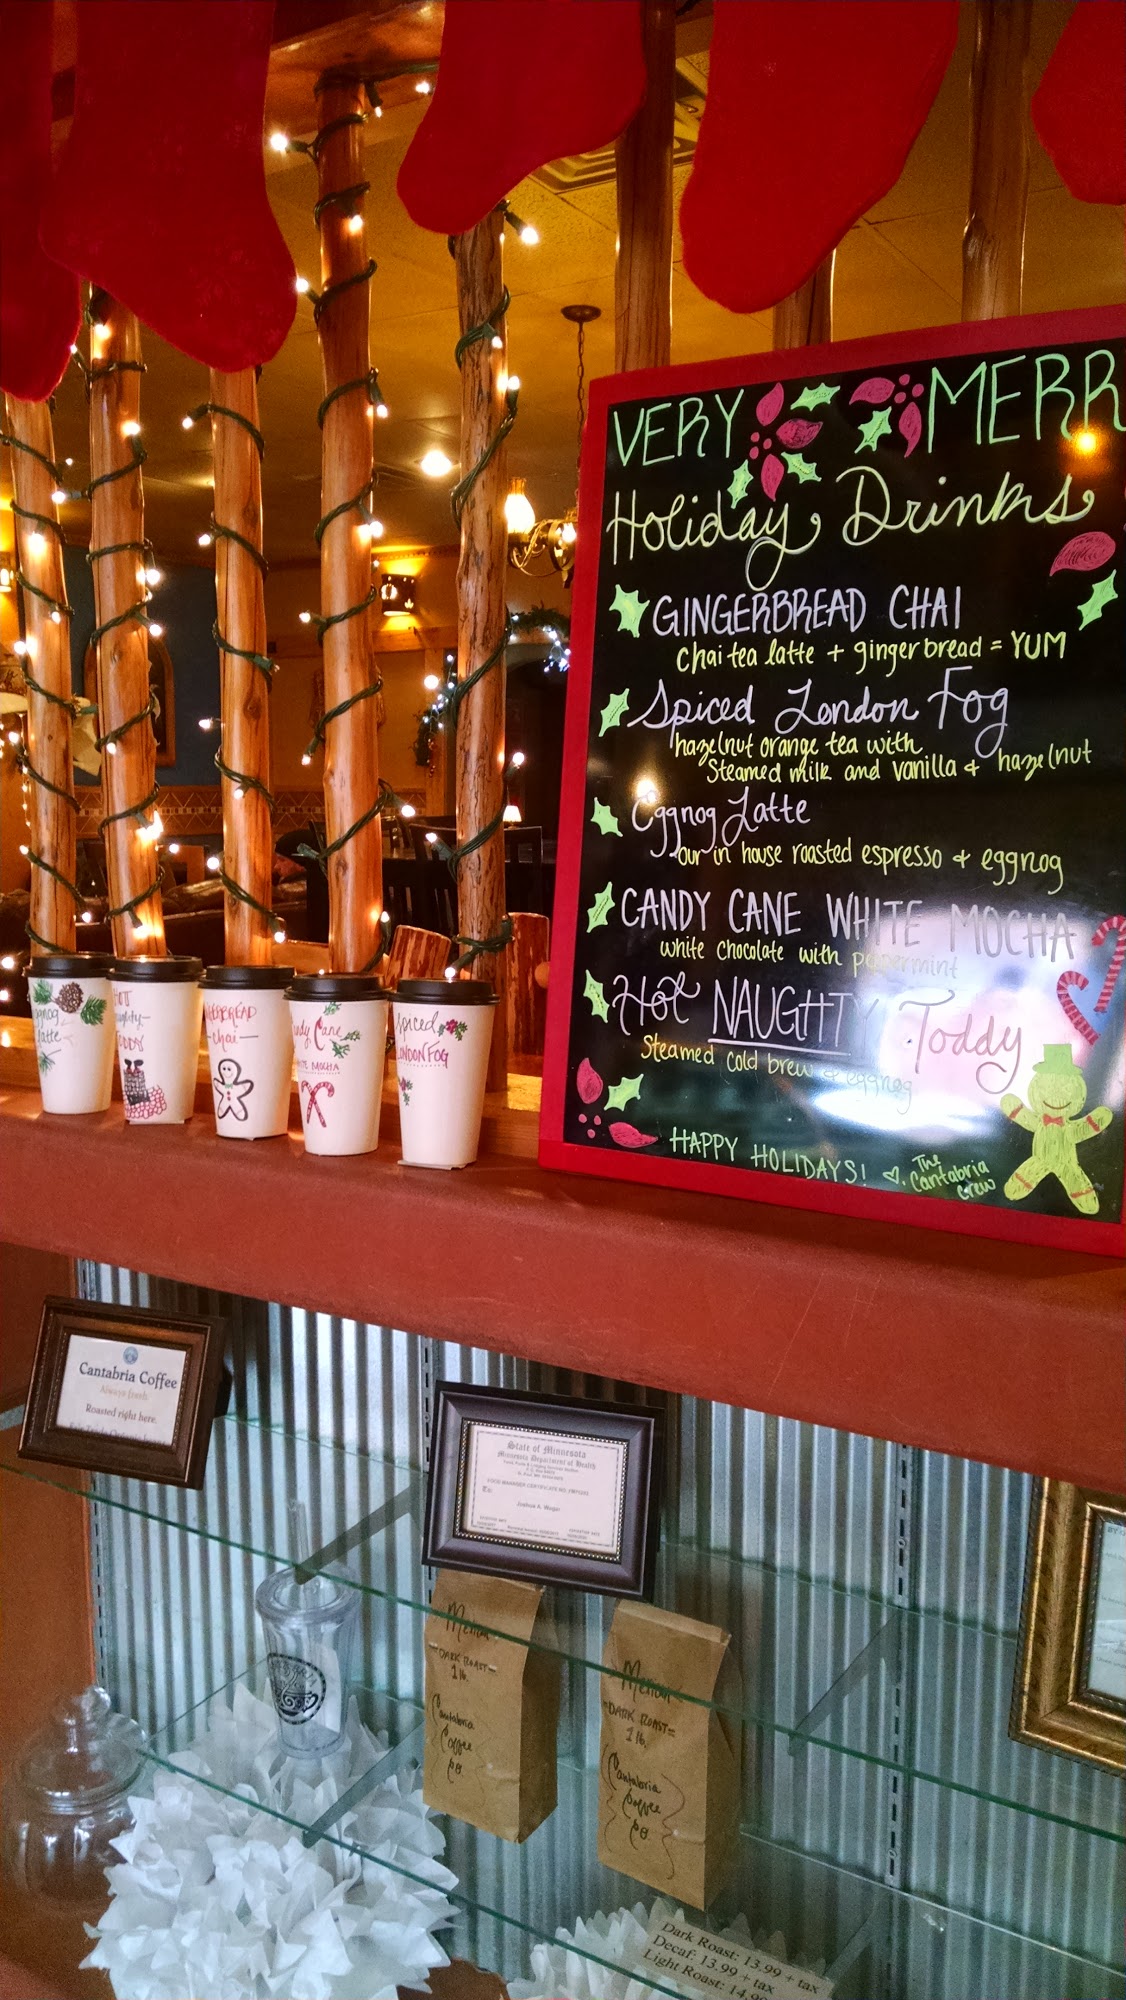 VERY MERR
Holiday Drinks
GINGERBREAD CHAI
chai tea latte + gingerbread = YUM
Spiced London Fog
hazelnut orange tea with
steamed milk and vanilla + hazelnut
Eggnog Latte
our in house roasted espresso + eggnog
CANDY CANE WHITE MOCHA
white chocolate with peppermint
Hot NAUGHTY Toddy
Steamed cold brew & eggnog
HAPPY HOLIDAYS!
The
Cantabria
crew
ggnog
latte
HOT
naughty
ODDY
GERBREAD
chai
andy Cane
WHITE MOCHA
Spiced
LONDON FOG
Cantabria Coffee
Always fresh
Roasted right here.
State of Minnesota
Minnesota Department of Health
To:
Joshua A. Wager
Mexican
DARK ROAST
1 lb.
Cantabria
Coffee
Mexican
DARK ROAST
1 lb.
Cantabria
Coffee
Dark Roast: 13.99 + tax
Decaf: 13.99 + tax
Light Roast: 14.99